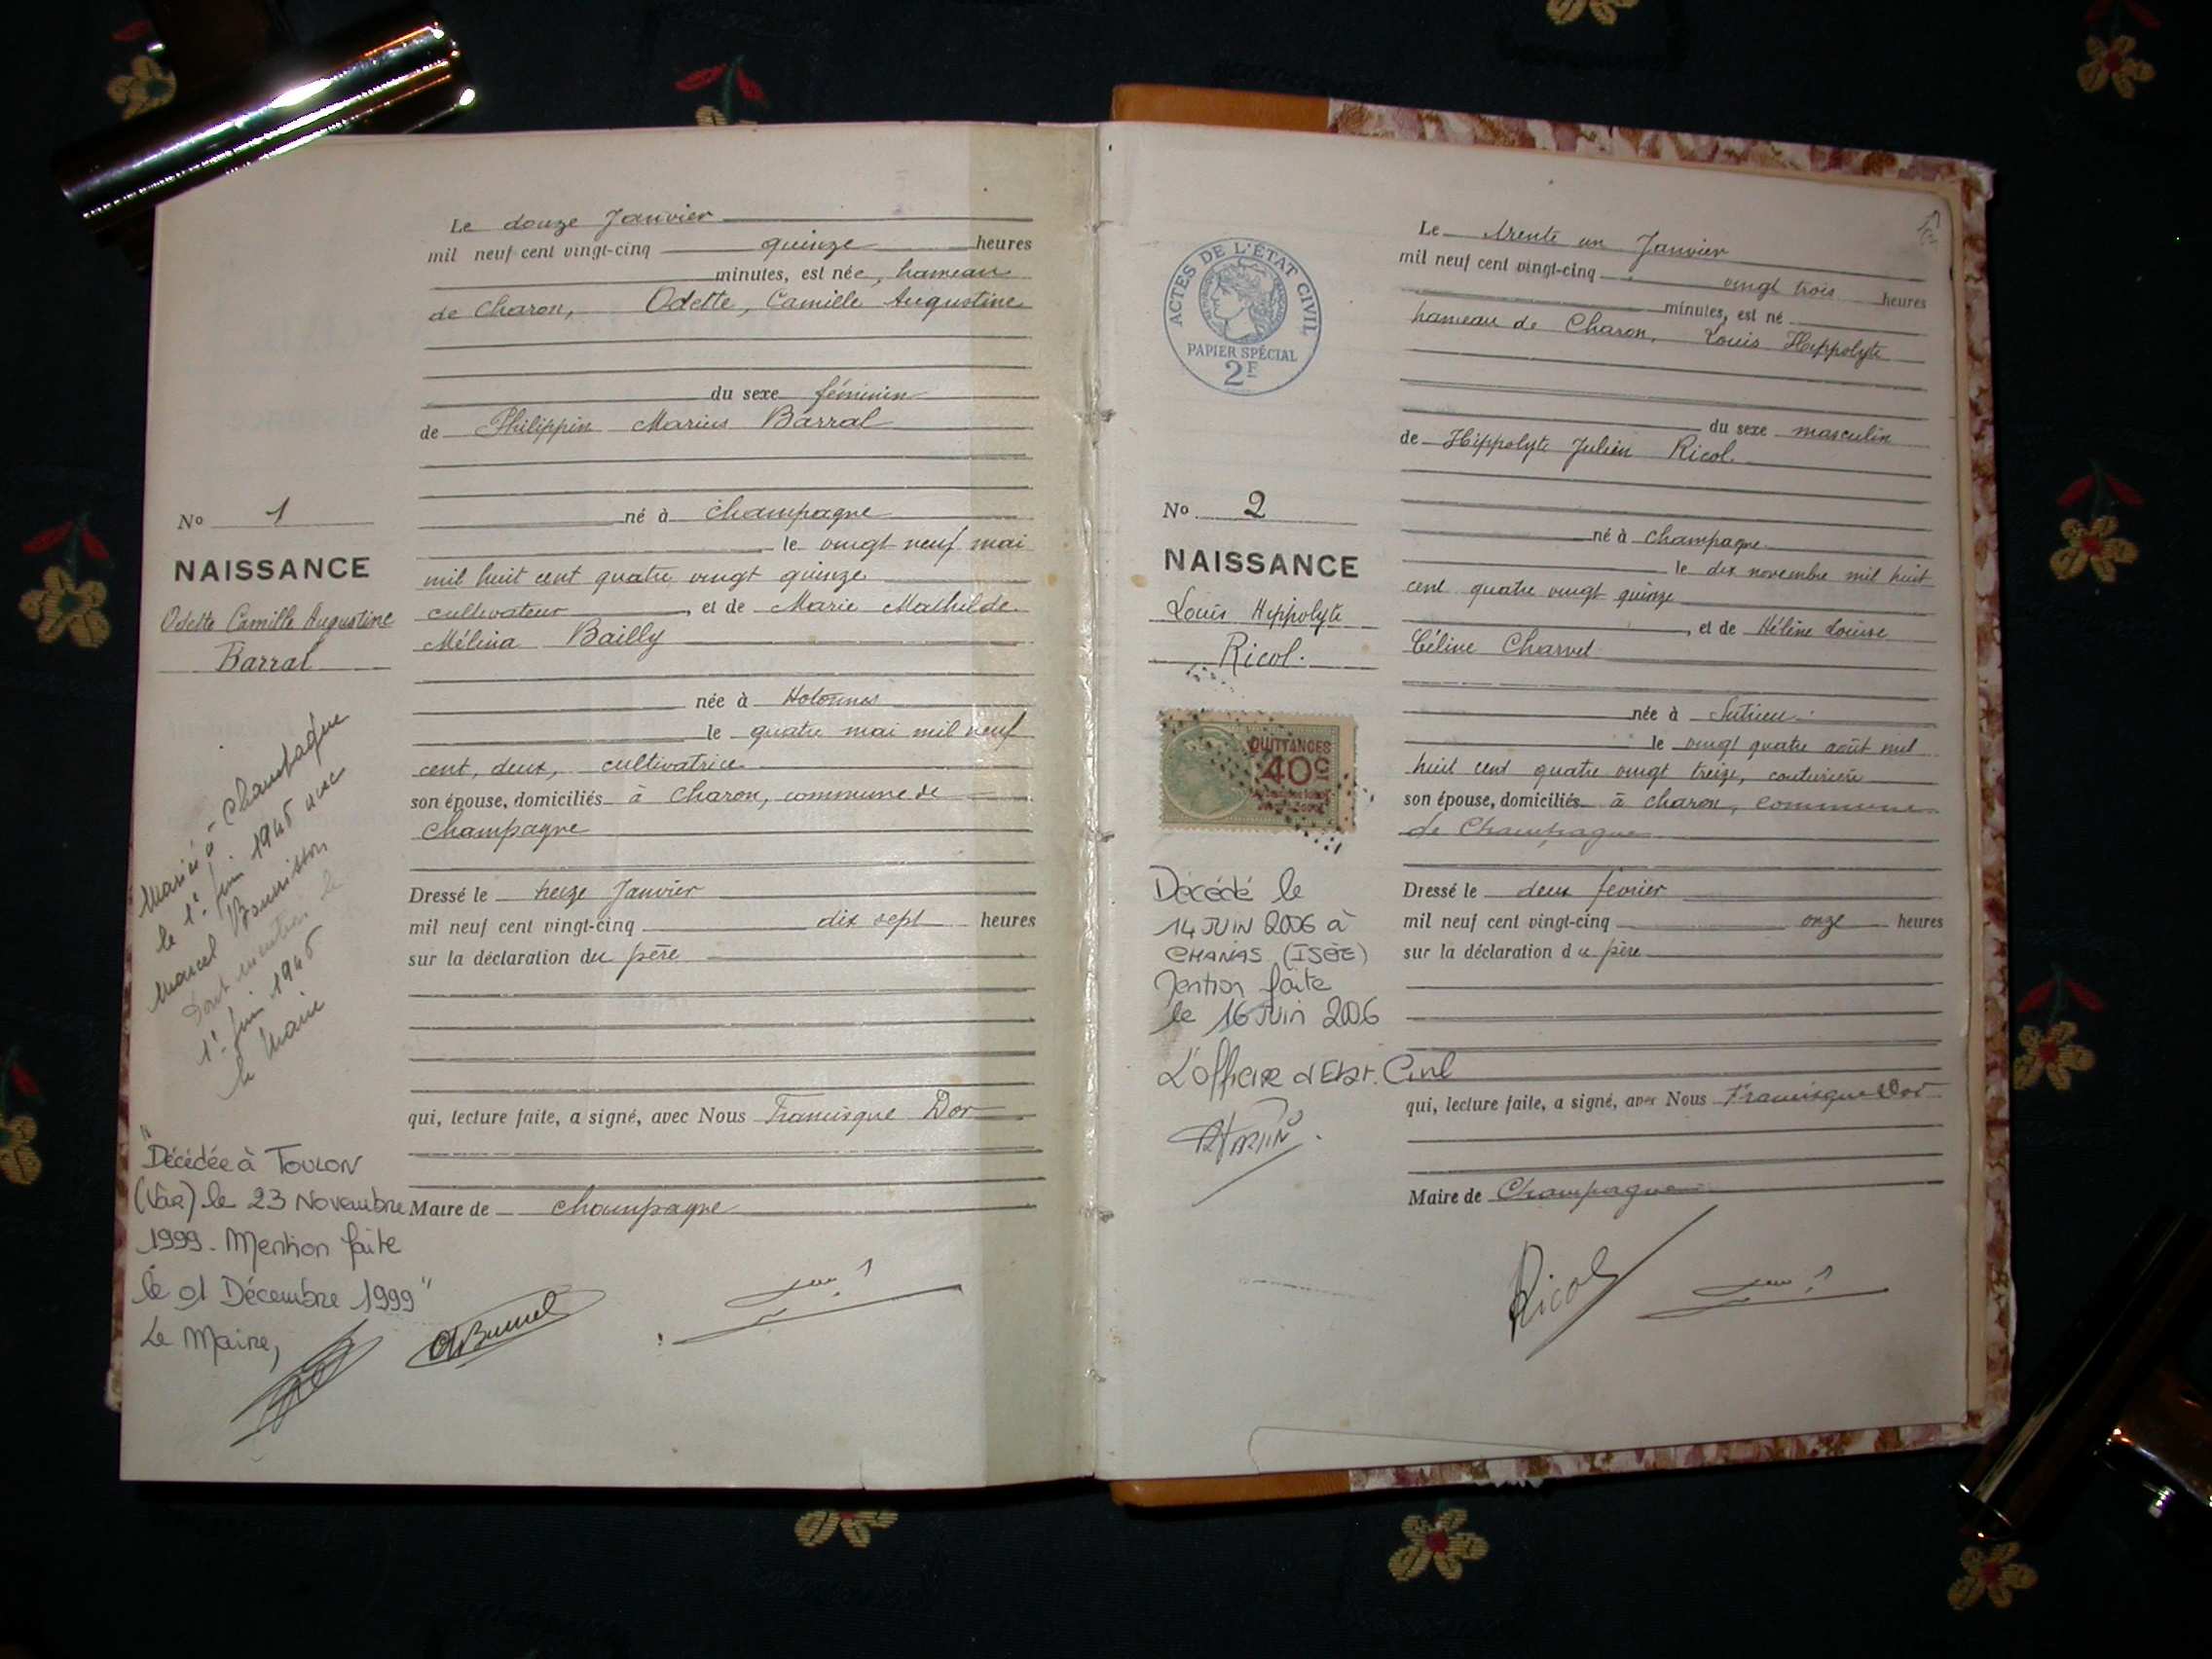 Le douze Janvier
mil neuf cent vingt-cinq quinze heures
minutes, est née, hameau
de Charon, Odette, Camille Augustine
du sexe féminin
de Philippin Marius Barral
No 1
NAISSANCE
Odette Camille Augustine
Barral
né à Champagne
le vingt neuf mai
mil huit cent quatre vingt quinze
cultivateur, et de Marie Mathilde
Mélina Bailly
née à Hotonnes
le quatre mai mil neuf
cent, deux, cultivatrice
son épouse, domiciliés à Charon, commune de
Champagne
Dressé le treize Janvier
mil neuf cent vingt-cinq dix sept heures
sur la déclaration du père
qui, lecture faite, a signé, avec Nous Francisque Dor
Maire de Champagne
Mariée à Champagne
le 1er juin 1946 avec
Marcel
Dont mention le
1er juin 1946
le Maire
"Décédée à TOULON
(Var) le 23 Novembre
1999. Mention faite
le 01 Décembre 1999"
Le Maire,
ACTES DE L'ÉTAT CIVIL
PAPIER SPÉCIAL
2F
Le trente un Janvier
mil neuf cent vingt-cinq vingt trois heures
minutes, est né
hameau de Charon, Louis Hippolyte
du sexe masculin
de Hippolyte Julien Ricol
No 2
NAISSANCE
Louis Hippolyte
Ricol.
né à Champagne
le dix novembre mil huit
cent quatre vingt quinze
, et de Hélène Louise
Céline Charvet
née à Sutrieu
le vingt quatre août mil
huit cent quatre vingt treize, couturière
son épouse, domiciliés à Charon, commune
de Champagne
QUITTANCES
40c
Dressé le deux février
mil neuf cent vingt-cinq onze heures
sur la déclaration du père
qui, lecture faite, a signé, avec Nous Francisque Dor
Maire de Champagne
Décédé le
14 JUIN 2006 à
CHANAS (ISÈRE)
Mention faite
le 16 Juin 2006
L'officier d'Etat. Civil
Ricol